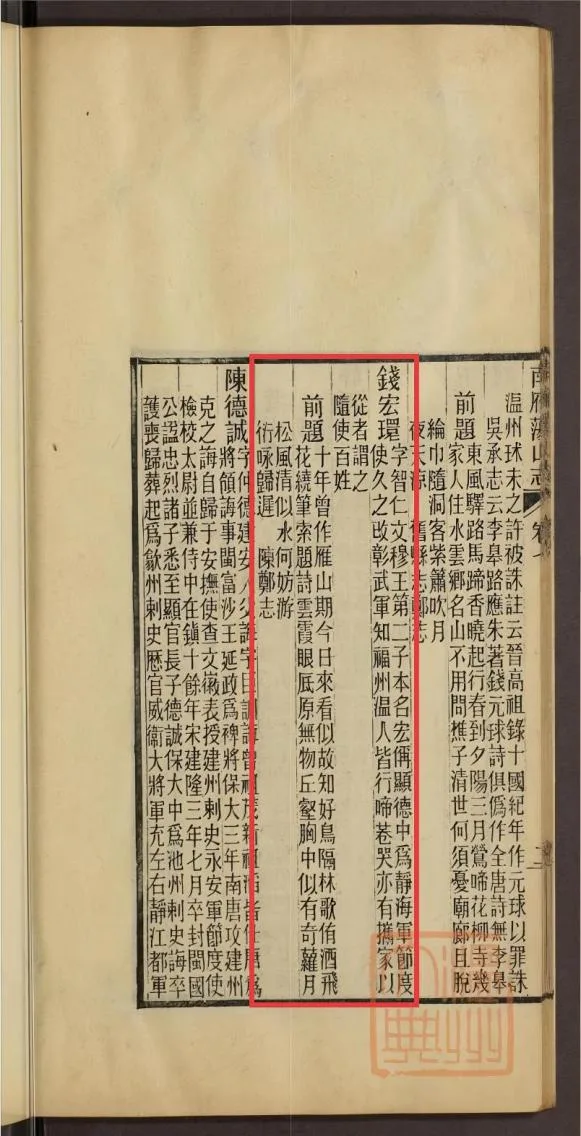 南雁蕩山志 卷
温州球未之許被誅註云晉高祖錄十國紀年作元球以罪誅
吳承志云李皋路應朱著錢元球詩俱僞作全唐詩無李皋
前題 東風驛路馬蹄香曉起行春到夕陽三月鶯啼花柳寺幾
家人住水雲鄉名山不用問樵子清世何須憂廟廊且脫
綸巾隨洞客紫簫吹月
夜天凉 舊縣志鄭志
錢宏環 字智仁文穆王第二子本名宏偁顯德中爲靜海軍節度
使久之攺彰武軍知福州温人皆行啼巷哭亦有攜家以
從者謂之
隨使百姓
前題 十年曾作雁山期今日來看似故知好鳥隔林歌侑酒飛
花繞筆索題詩雲霞眼底原無物丘壑胸中似有奇蘿月
松風清似水何妨游
衍咏歸遲 陳鄭志
陳德誠 字仲德建安人父誨字巨訓誨曾祖茂新祖滔皆仕唐爲
將領誨事閩富沙王延政爲裨將保大三年南唐攻建州
克之誨自歸于安撫使查文徽表授建州刺史永安軍節度使
檢校太尉並兼侍中在鎮十餘年宋建隆三年七月卒封閩國
公諡忠烈諸子悉至顯官長子德誠保大中爲池州刺史誨卒
護喪歸葬起爲歙州刺史歷官威衞大將軍充左右靜江都軍